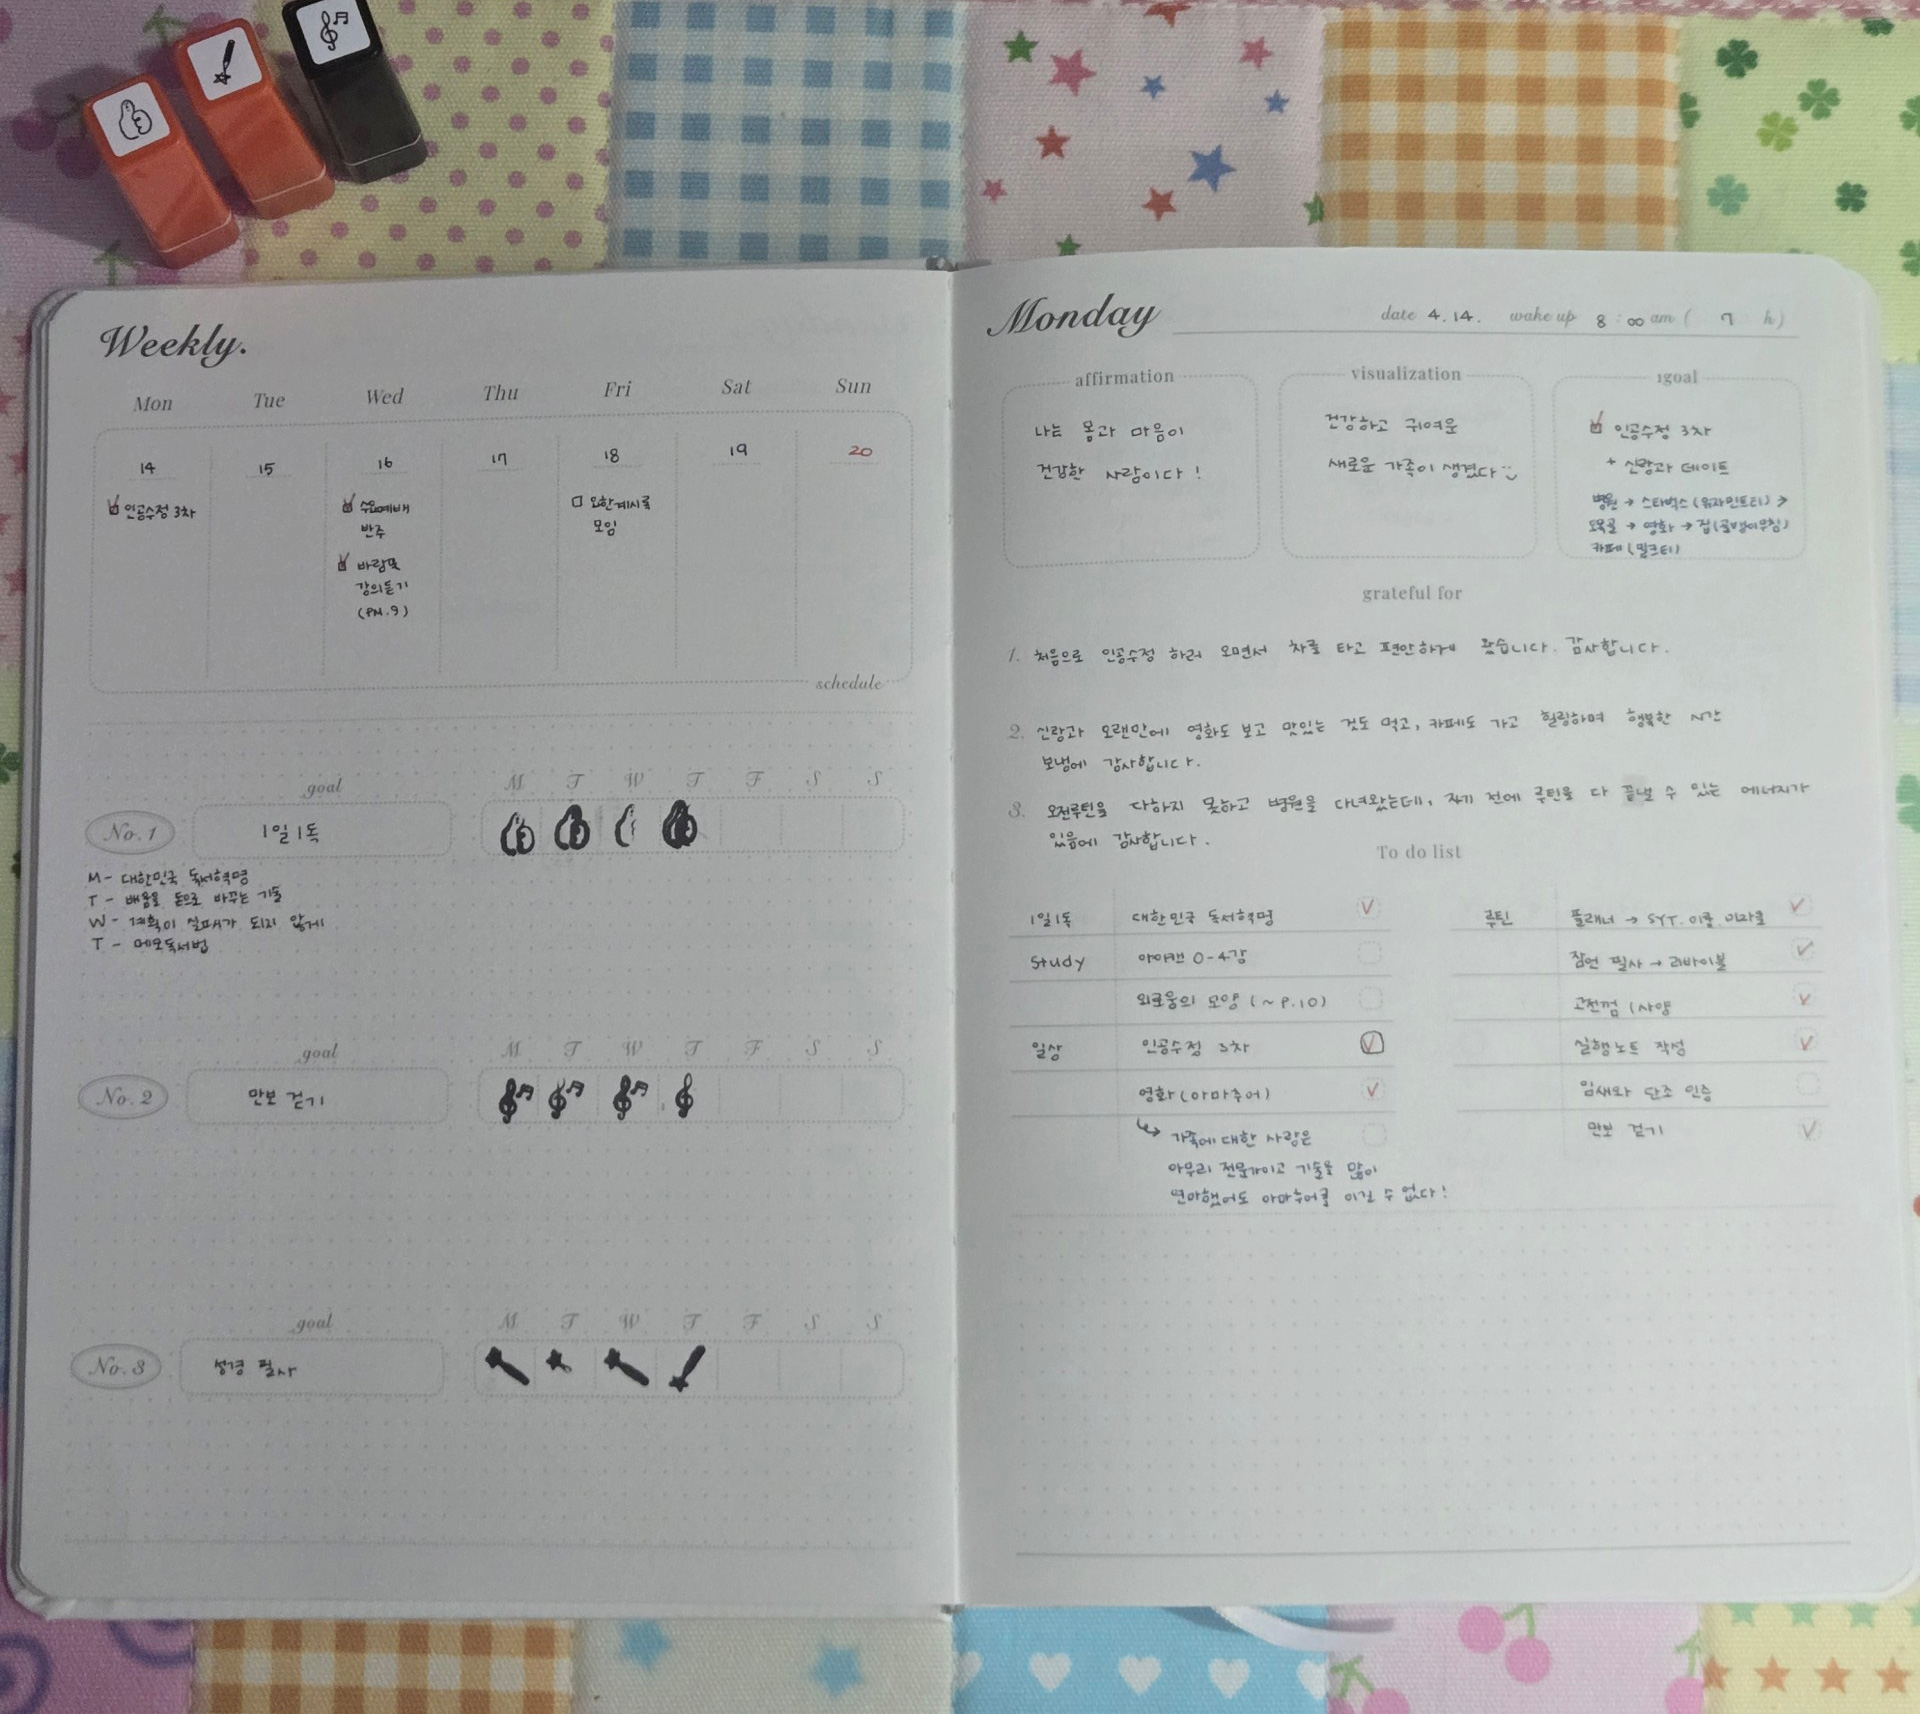 Weekly.
Mon Tue Wed Thu Fri Sat Sun
14 15 16 17 18 19 20
인공수정 3차
수요예배
반주
바람및
강의듣기
(PM.9)
요한계시록
모임
schedule
goal M T W T F S S
No. 1 1일 1독
M - 대한민국 독서혁명
T - 배움을 돈으로 바꾸는 기술
W - 계획이 실패가 되지 않게
T - 메모독서법
goal M T W T F S S
No. 2 만보 걷기
goal M T W T F S S
No. 3 성경 필사
Monday date 4.14. wake up 8 : 00 am ( 7 h)
affirmation
나는 몸과 마음이
건강한 사람이다!
visualization
건강하고 귀여운
새로운 가족이 생겼다
1goal
인공수정 3차
+ 신랑과 데이트
병원 → 스타벅스 (유자민트티) →
→ 영화 → 집(골뱅이무침)
카페 (밀크티)
grateful for
1. 처음으로 인공수정 하러 오면서 차를 타고 편안하게 왔습니다. 감사합니다.
2. 신랑과 오랜만에 영화도 보고 맛있는 것도 먹고, 카페도 가고 힐링하며 행복한 시간
보냄에 감사합니다.
3. 오전루틴을 다하지 못하고 병원을 다녀왔는데, 자기 전에 루틴을 다 끝낼 수 있는 에너지가
있음에 감사합니다.
To do list
1일 1독 대한민국 독서혁명
study 아이캔 0-4강
외로움의 모양 (~P.10)
일상 인공수정 3차
영화 (아마추어)
가족에 대한 사랑은
아무리 전문가이고 기술을 많이
연마했어도 아마추어를 이길 수 없다!
루틴 플래너 → SYT. 이룸. 미자을
잠언 필사 → 리바이블
고전껌 1사양
실행노트 작성
임새와 단조 인증
만보 걷기